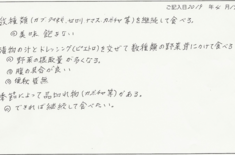 ご記入日2019年
数種類(カブ セロリ トマト カボチャ等)を継続して食べる。
◎美味 飽きない
漬物の汁とドレッシング(ピエトロ)を交ぜて数種類の野菜にかけて食べる
◎野菜の摂取量が多くなる。
◎腹の具合が良い
◎便秘皆無
季節によって品切れ物(カボチャ等)がある。
◎できれば継続して食べたい。